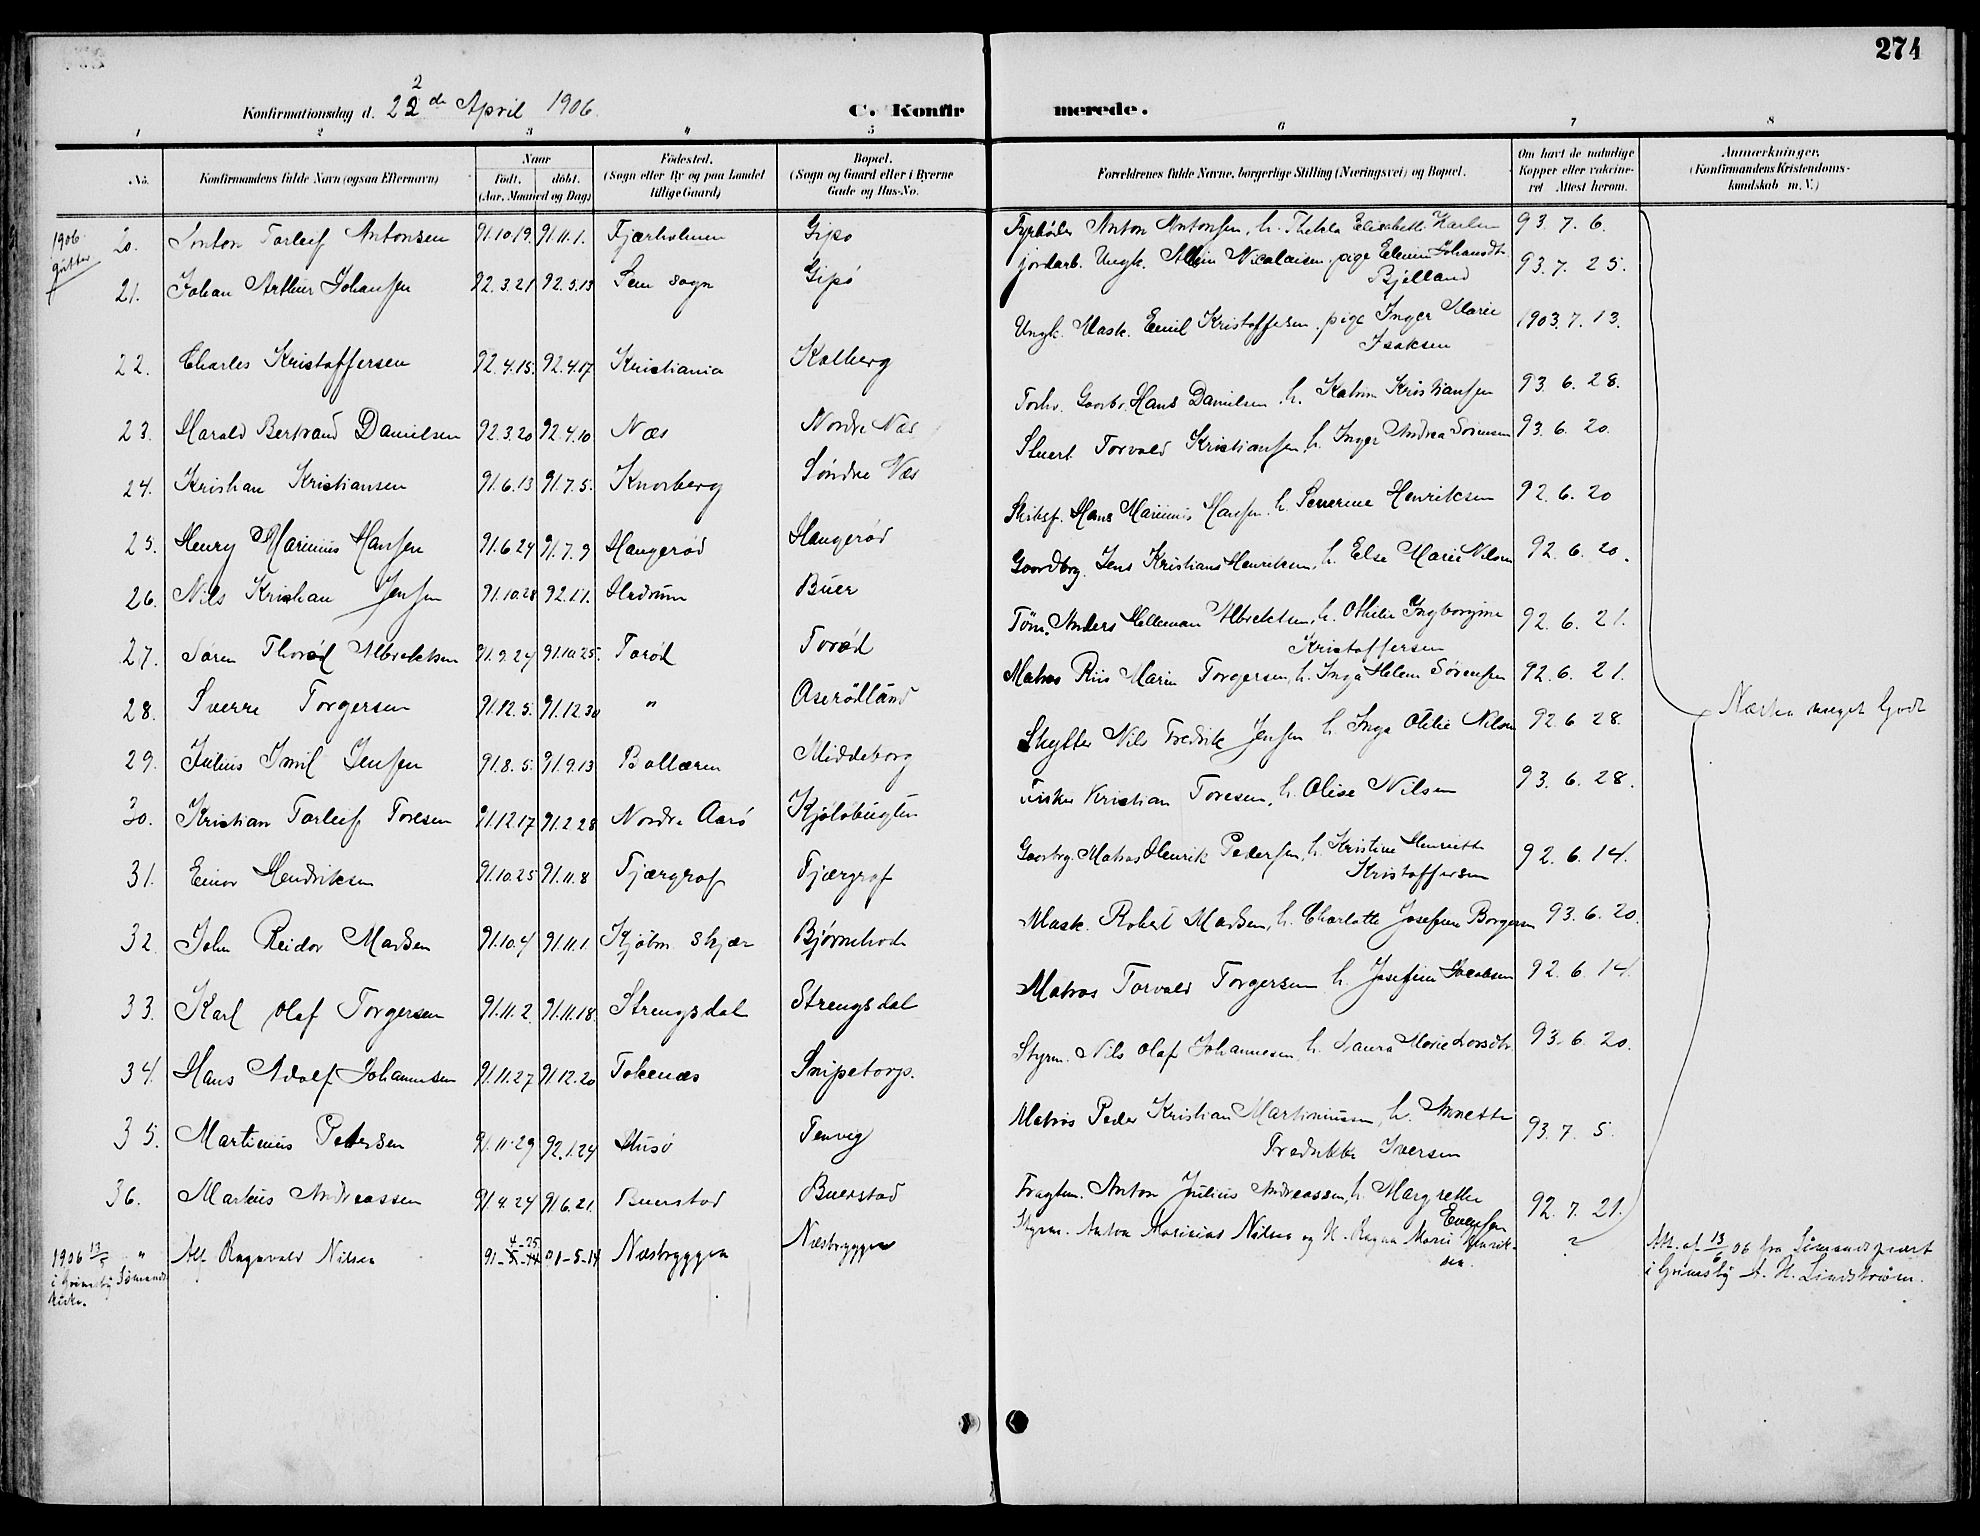 274
Konfirmationsdag d. 22de April 1906.
C. Konfirmerede.
1 2 3 4 5 6 7 8
No.
Konfirmandens fulde Navn (ogsaa Efternavn)
Naar
Født. døbt.
(Aar, Maaned og Dag)
Fødested.
(Sogn eller By og paa Landet
tillige Gaard)
Bopæl.
(Sogn og Gaard eller i Byerne
Gade og Hus-No.
Forældrenes fulde Navne, borgerlige Stilling (Næringsvei) og Bopæl.
Om havt de naturlige
Kopper eller vakcine-
ret Attest herom.
Anmærkninger.
(Konfirmandens Kristendoms-
kundskab m. V.)
1906
gutter
20. Anton Torleif Antonsen 91.10.19. 91.11.1. Fjærholmen Gipø Fyrbøder Anton Antonsen, h. Thekla Elisabeth Karlsen 93. 7. 6.
21. Johan Arthur Johansen 92.3.21 92.5.13 Sem sogn Gipø jordarb. Ungk. Nicolaisen, pige Johansdt. 93. 7. 25.
Bjelland
22. Charles Kristoffersen 92.4.15. 92.4.17 Kristiania Kalberg Ungk. Mask. Emil Kristoffersen, pige Inger Marie 1903. 7. 13.
Isaksen
23. Harald Bertrand Danielsen 92.3.20 92.4.10 Næs Nordre Næs Forhv. Gaardbr. Hans Danielsen, h. Katrin Kristiansen 93. 6. 28.
24. Kristian Kristiansen 91.6.13 91.7.5. Knarberg Søndre Næs Stuert Torvald Kristiansen, h. Inger Andrea Sørensen 93. 6. 20.
25. Henry Marinius Hansen 91.6.24 91.7.9 Haugerød Haugerød Skibsf. Hans Marinius Hansen, h. Severine Henriksen 92. 6. 20
26. Nils Kristian Jensen 91.10.28 92.1.1. Hedrum Buer Gaardbrg. Jens Kristians Henriksen, h. Else Marie Nilsen 92. 6. 20.
27. Søren Thorød Albrektsen 91.9.24 91.10.25. Torød Torød Tøm. Anders Helleman Albrektsen, h. Othilie Ingborgine 92. 6. 21.
Kristoffersen
28. Sverre Torgersen 91.12.5. 91.12.30 " Oserødland Matros Riis Marin Torgersen, h. Inga Helene Sørensen 92. 6. 21.
29. Julius Imil Jensen 91.8.5. 91.9.13 Bollæren Middeborg Skytter Nils Fredrik Jensen h. Inga Otilie Nilsen 92. 6 28.
30. Kristian Torleif Toresen 91.12.17 91.2.28 Nordre Aarø Kjølebugten Fisker Kristian Toresen, h. Olise Nilsen 93. 6. 28.
31. Einar Hendriksen 91.10.25 91.11.8 Fjærgrof Fjærgrof Gaardbrg. Matros Henrik Pedersen, h. Kristine Henriette 92. 6. 14.
Kristoffersen
32. John Reidar Madsen 91.10.4 91.11.1 Kjøbm. skjær Bjørnehode Mask. Robert Madsen, h. Charlotte Josefine Borgersen 93. 6. 20.
33. Karl Olaf Torgersen 91.11.2. 91.11.18. Strengsdal Strengsdal Matros Torvald Torgersen h. Josefine Jacobsen 92. 6. 14.
34. Hans Adolf Johannesen 91.11.27 91.12.20 Tokenæs Snipetorp. Styrm. Nils Olaf Johannesen, h. Laura Marie Larsdtr. 93. 6. 20.
35. Martinius Petersen 91.11.29 92.1.24 Husø Tenvig Matros Peder Kristian Martiniussen, h. Annette 93. 7. 5.
Fredrikke Iversen
36. Marius Andreassen 91.4.24 91.6.21. Buerstad Buerstad Fragtem. Anton Julius Andreassen, h. Margrethe 92. 7. 21.
Evensen
Næsten meget Godt
1906 13/5 " Alf Ragnvald Nilsen 91-4-25 91-5-14 Næsbryggen Næsbryggen Styrm. Anton Matisias Nilsen og H. Ragna Marie Henrik- ?
sen.
i Grimsby Sømands-
kirke.
Att. af 13/6 06 fra Sømandspræst
i Grimsby A. H. Lindstrøm.